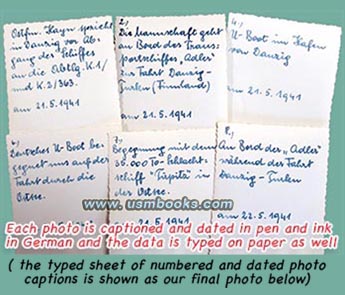 Ostfm. Hayn spricht
in Danzig vor Ab-
gang des Schiffes
an die Abtlg. K.1/
und K.2/363.
am 21.5.1941
2.)
Die Mannschaft geht
an Bord des Trans-
portschiffes „Adler"
zur Fahrt Danzig-
Turku (Finnland)
am 21.5.1941
4.)
U-Boot im Hafen
von Danzig
am 21.5.1941
6.)
Deutsches U-Boot be-
gegnet uns auf der
Fahrt durch die
Ostsee.
7.)
Begegnung mit dem
35.000 To-Schlacht-
schiff "Tirpitz" in
der Ostsee.
8.)
An Bord des „Adler"
während der Fahrt
Danzig - Turku
am 22.5.1941
www.usmbooks.com
Each photo is captioned and dated in pen and ink
in German and the data is typed on paper as well
( the typed sheet of numbered and dated photo
captions is shown as our final photo below)